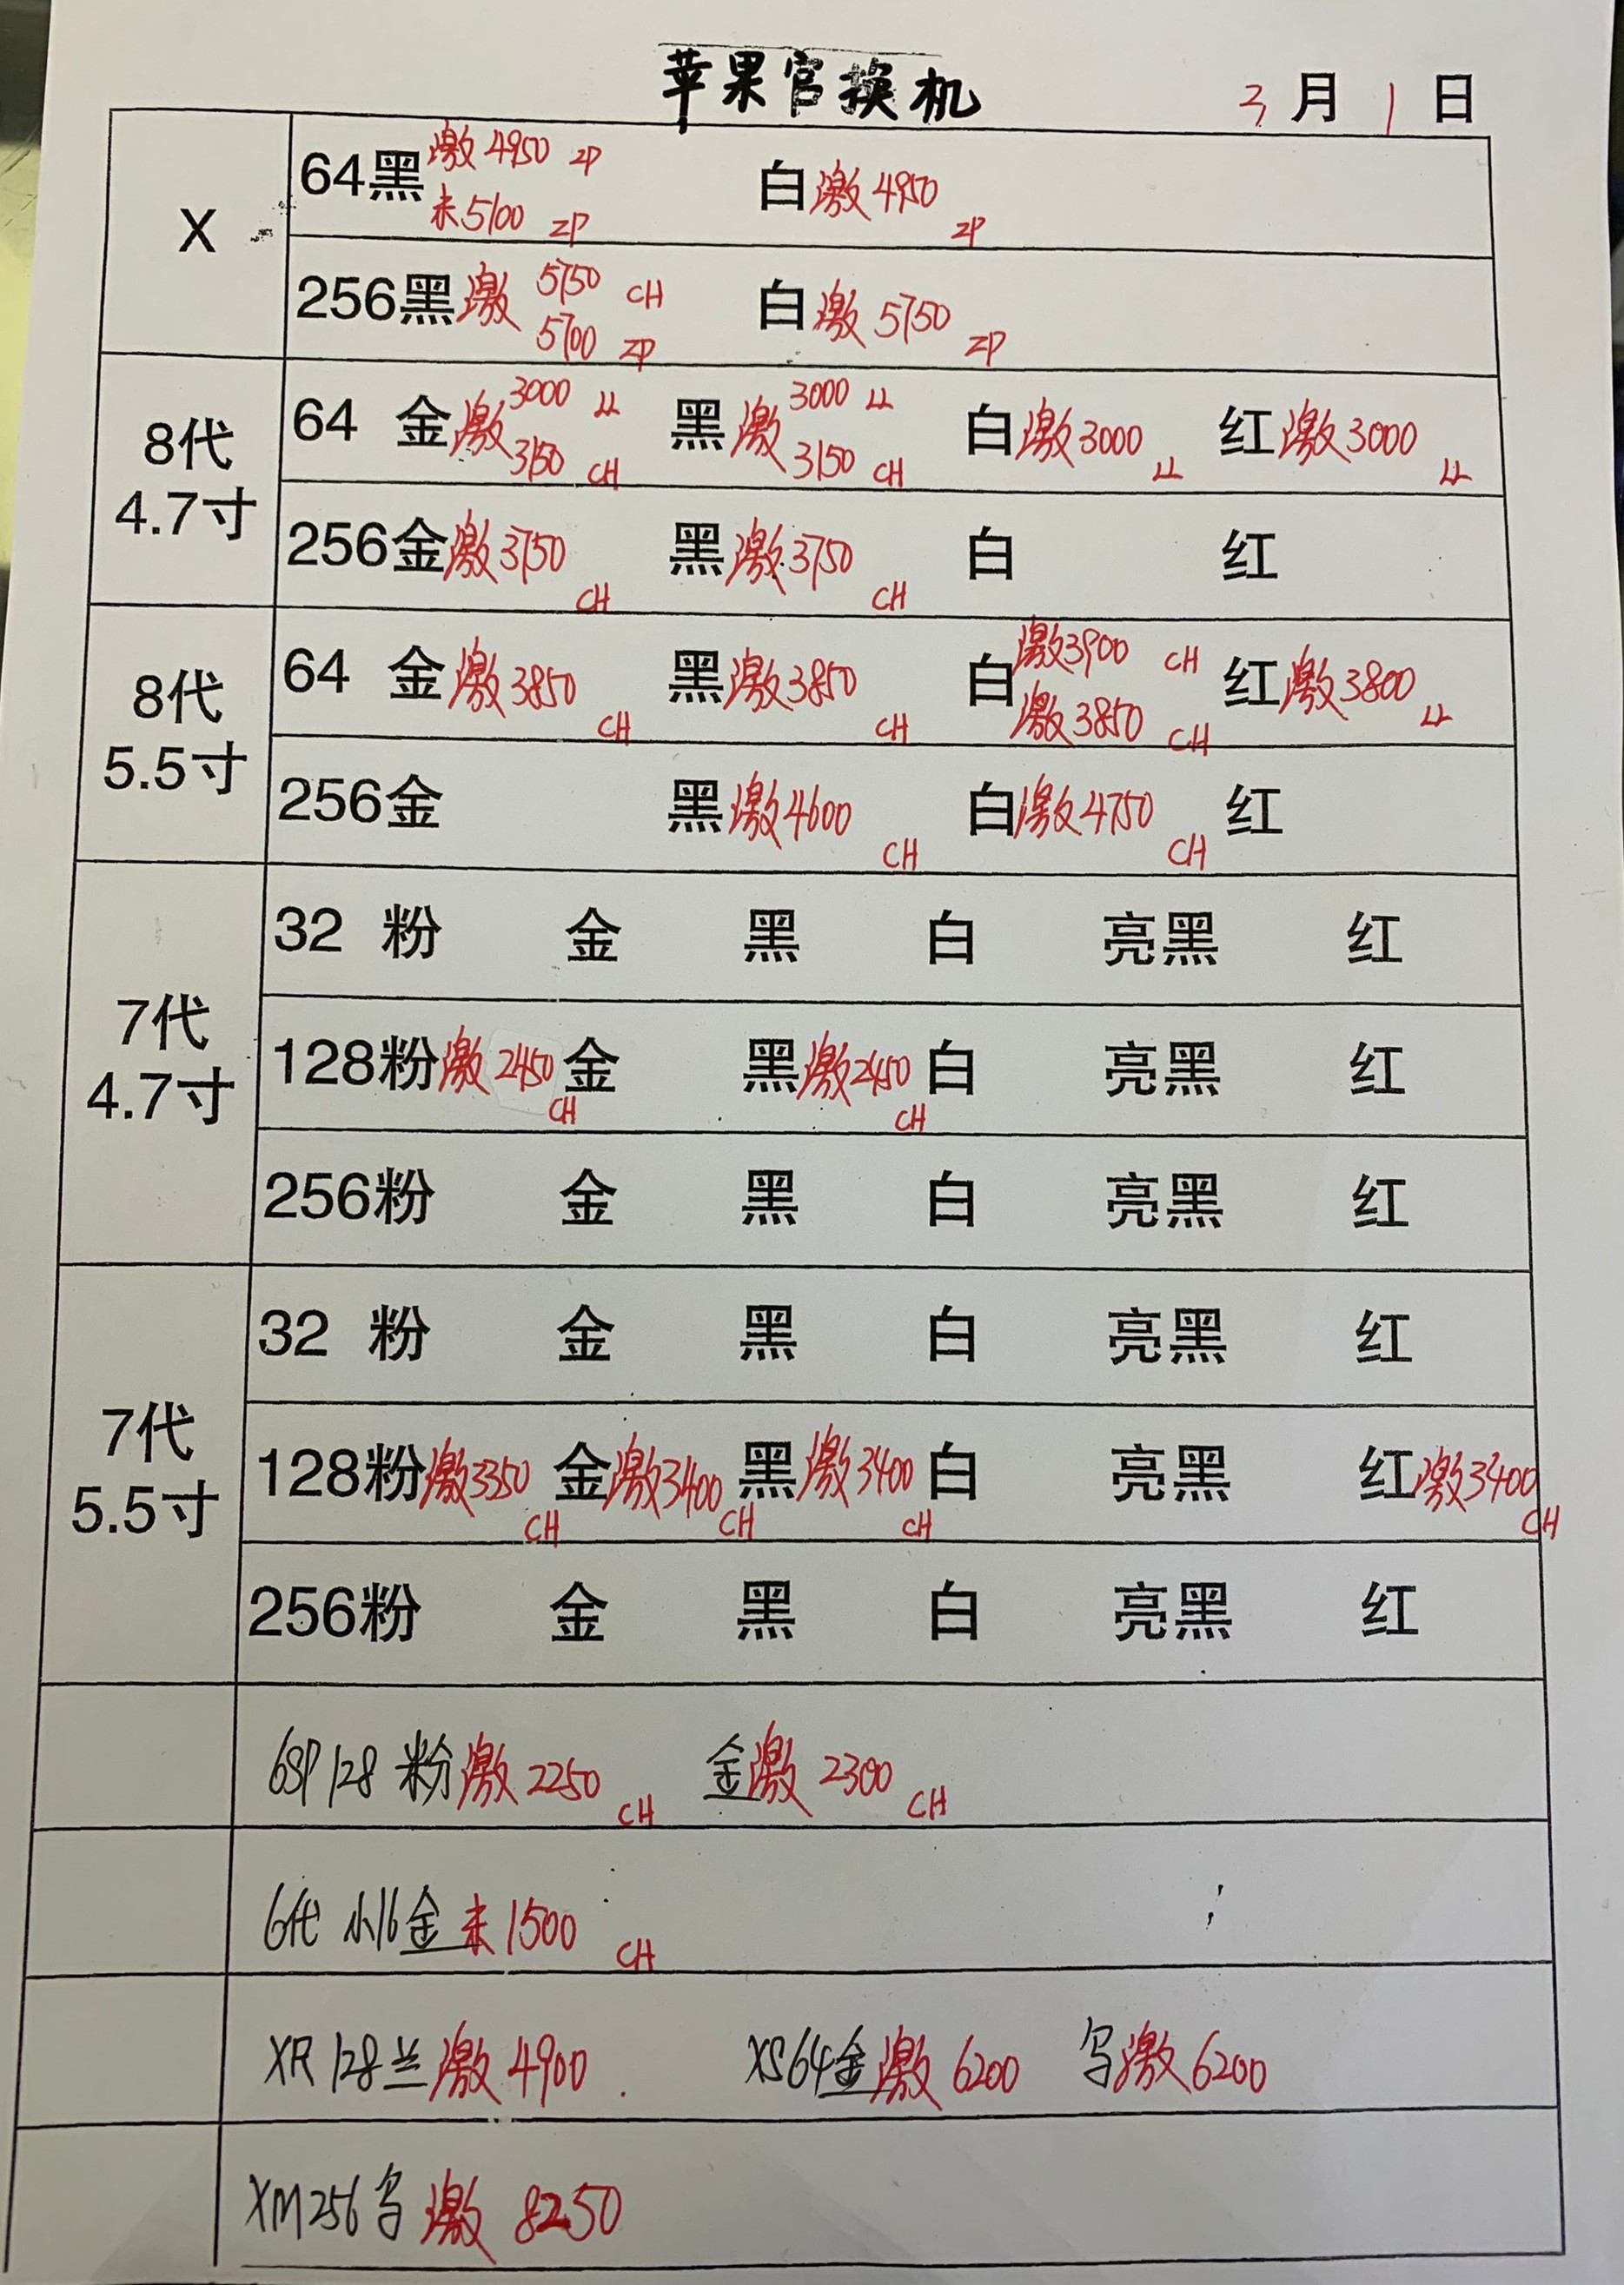 苹果官换机 3月1日
X
64黑 激4950 ZP 白激4950 ZP
未5100 ZP
256黑激 5750 CH 白激5750 ZP
5700 ZP
8代
4.7寸
64 金激 3000 LL 黑激 3000 LL 白激3000 LL 红激3000 LL
3150 CH 3150 CH
256金激3750 CH 黑激3750 CH 白 红
8代
5.5寸
64 金激3850 CH 黑激3850 CH 白激3900 CH 红激3800 LL
激3850 CH
256金 黑激4600 CH 白激4750 CH 红
7代
4.7寸
32 粉 金 黑 白 亮黑 红
128粉激2450 CH 金 黑激2450 CH 白 亮黑 红
256粉 金 黑 白 亮黑 红
7代
5.5寸
32 粉 金 黑 白 亮黑 红
128粉激3350 CH 金激3400 CH 黑激3400 CH 白 亮黑 红激3400 CH
256粉 金 黑 白 亮黑 红
6SP 128 粉激2250 CH 金激2300 CH
6代 小16金未1500 CH
XR 128兰激4900 XS64金激6200 乌激6200
XM256乌激8250